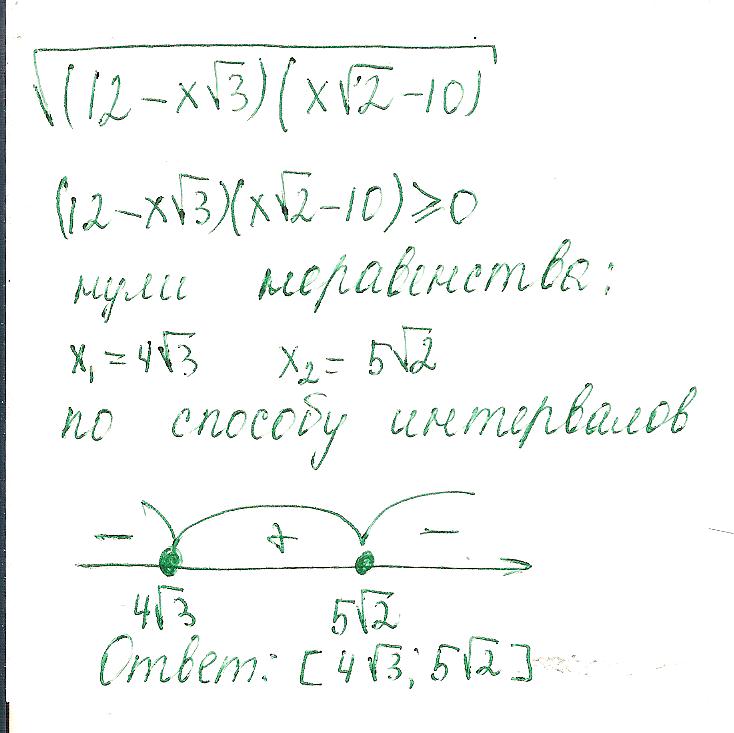 √((12-x√3)(x√2-10))
(12-x√3)(x√2-10)≥0
нули неравенства:
x₁=4√3 x₂=5√2
по способу интервалов
- + -
4√3 5√2
Ответ: [4√3; 5√2]